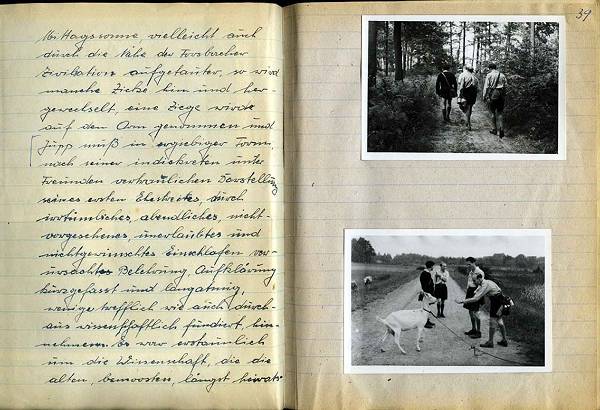 Mittagssonne vielleicht auch
durch die Nähe der Forsbacher
Zivilation aufgetauter, so wird
manche Zicke hin und her-
gewechselt, eine Ziege wird
auf den Arm genommen und
Jupp muß in ergiebiger Form,
nach seiner indiskreten unter
Freunden vertraulichen Darstellung
seines ersten Ehestreites, durch
irrtümliches, abendliches, nicht-
vorgesehenes, unerlaubtes und
nichtgewünschtes Einschlafen ver-
ursachtes Belehrung, Aufklärung
kurzgefasst und langatmig,
wenige trefflich wie auch durch-
aus wissenschaftlich fundiert, hin-
nehmen. Es war erstaunlich
um die Wissenschaft, die die
alten, bemoosten, längst heirats-
39